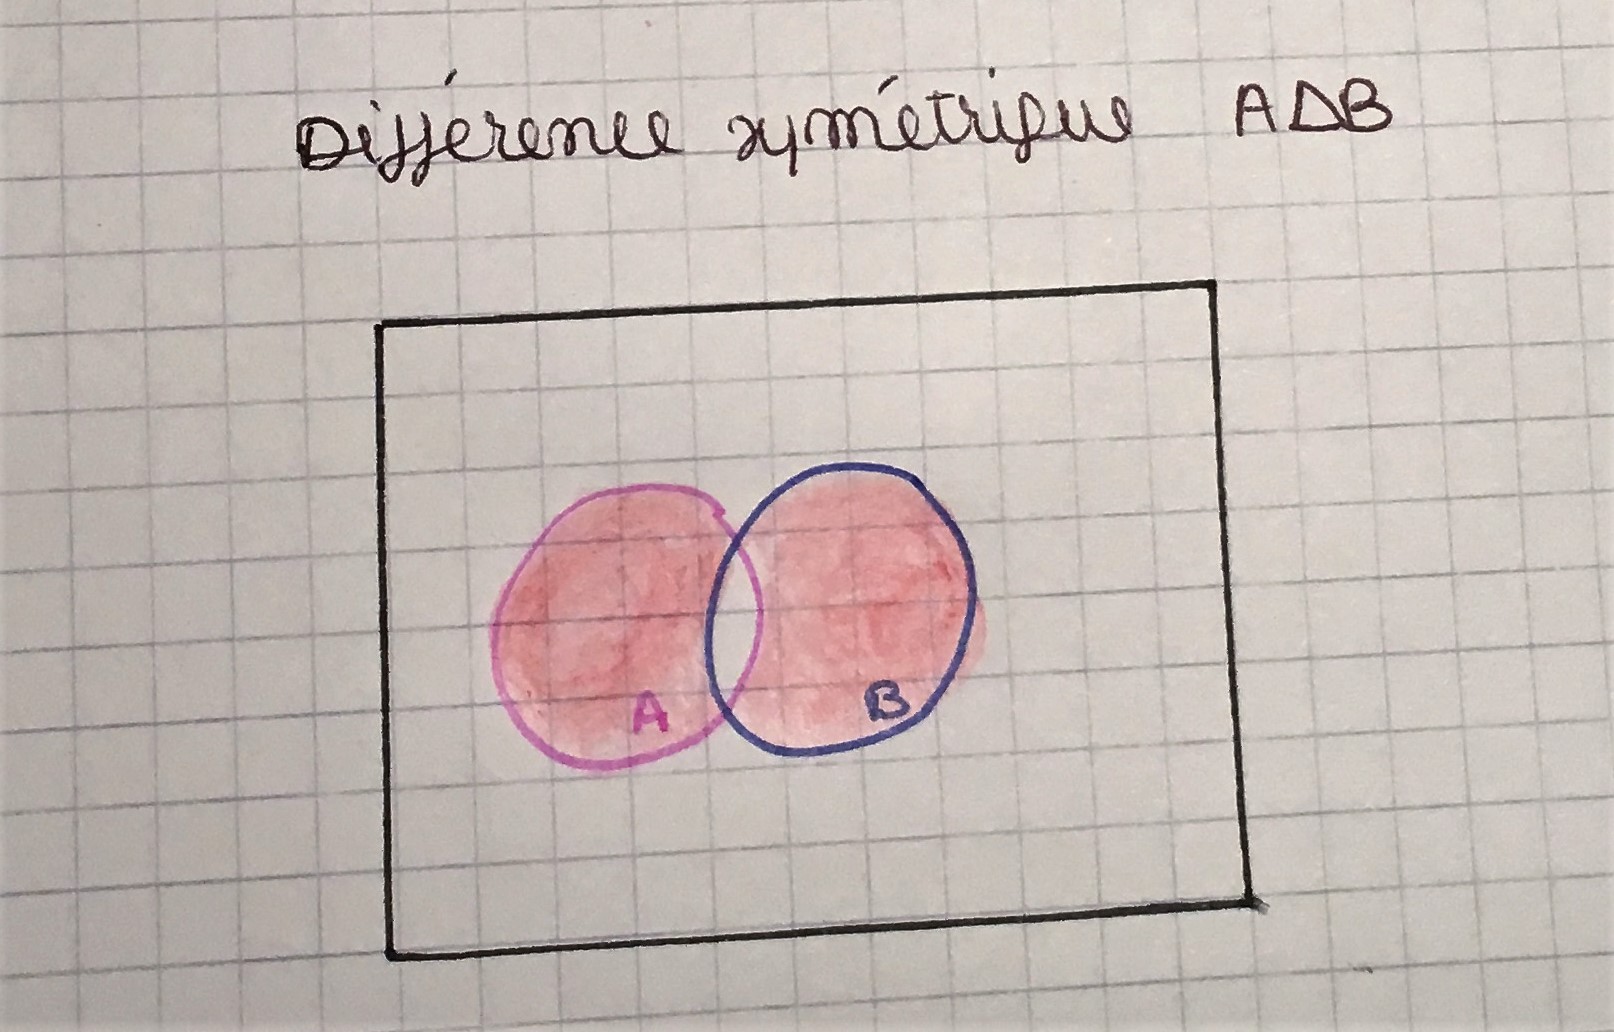 Différence symétrique AΔB
A
B